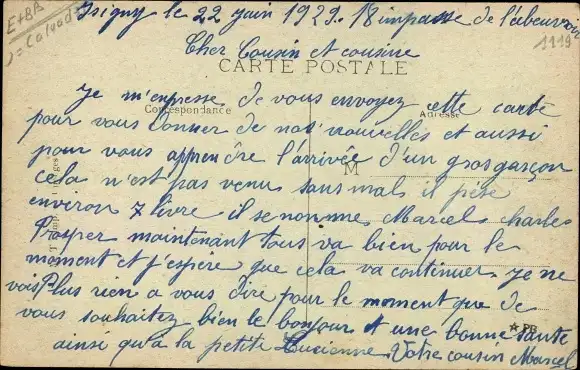 Isigny le 22 juin 1929. 18 impasse de l'abeuvroir
E+BB
Calvados
1119
Cher Cousin et cousine
CARTE POSTALE
Correspondance
Adresse
Je m'enpresse de vous envoyez cette carte
pour vous donner de nos nouvelles et aussi
pour vous apprendre l'arrivée d'un gros garçon
M
cela n'est pas venu sans mal il pèse
environ 7 livre il se nomme Marcel Charles
Prosper maintenant tous va bien pour le
moment et j'espère que cela va continuer. je ne
vois Plus rien a vous dire pour le moment que de
vous souhaitez bien le bonjour et une bonne sante
PB
ainsi qu'a la petite Lucienne Votre cousin Marcel